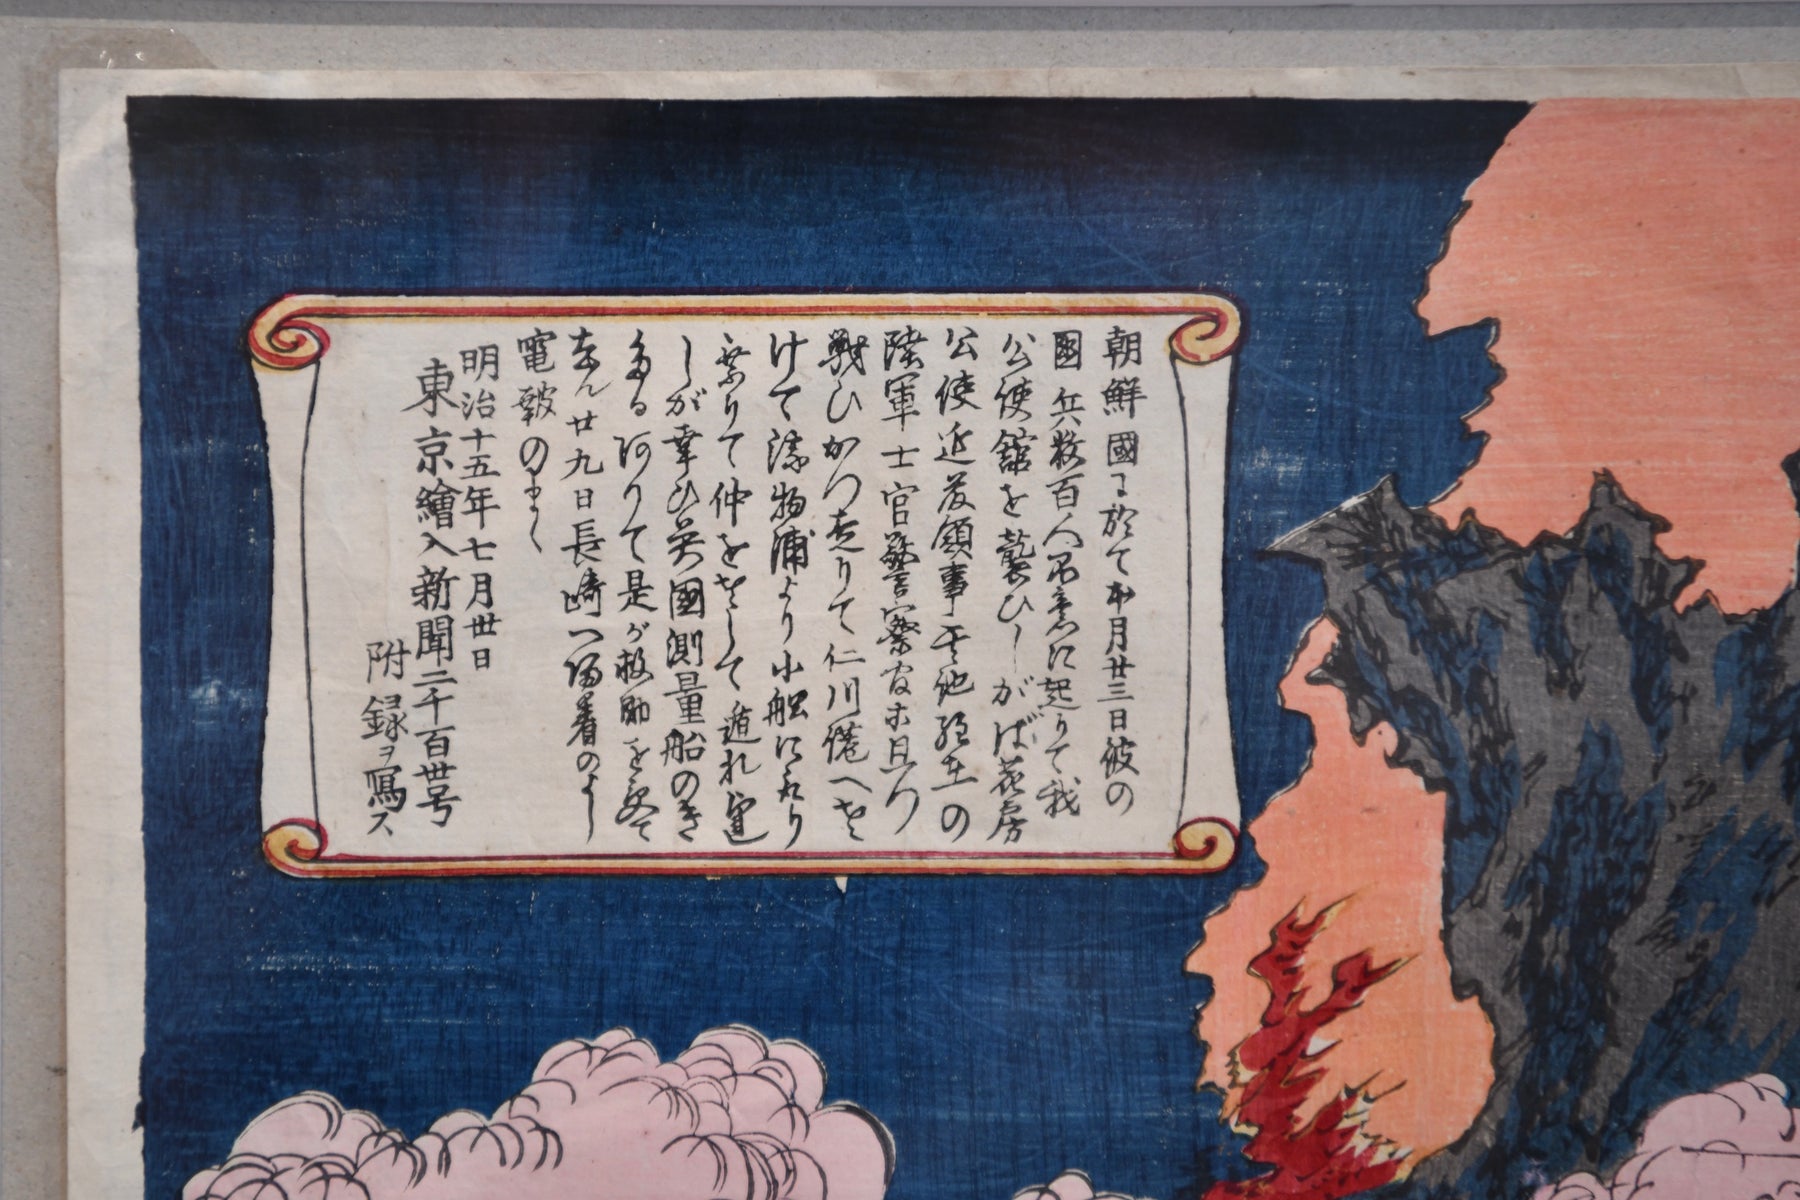 朝鮮國に於て本月廿三日彼の
國兵数百人不意に起りて我
公使舘を襲ひしがば花房
公使近藤領事其他在の
陸軍士官警察官等且つ
戦ひかつ走りて仁川港へ
けて済物浦より小船に
乗りて仲をさして遁れ
しが幸ひ英國測量船の
ありて是が救助を
なん廿九日長崎へ帰着のよし
電報のまゝ
明治十五年七月卅日
東京繪入新聞二千百卅号
附録ヲ寫ス